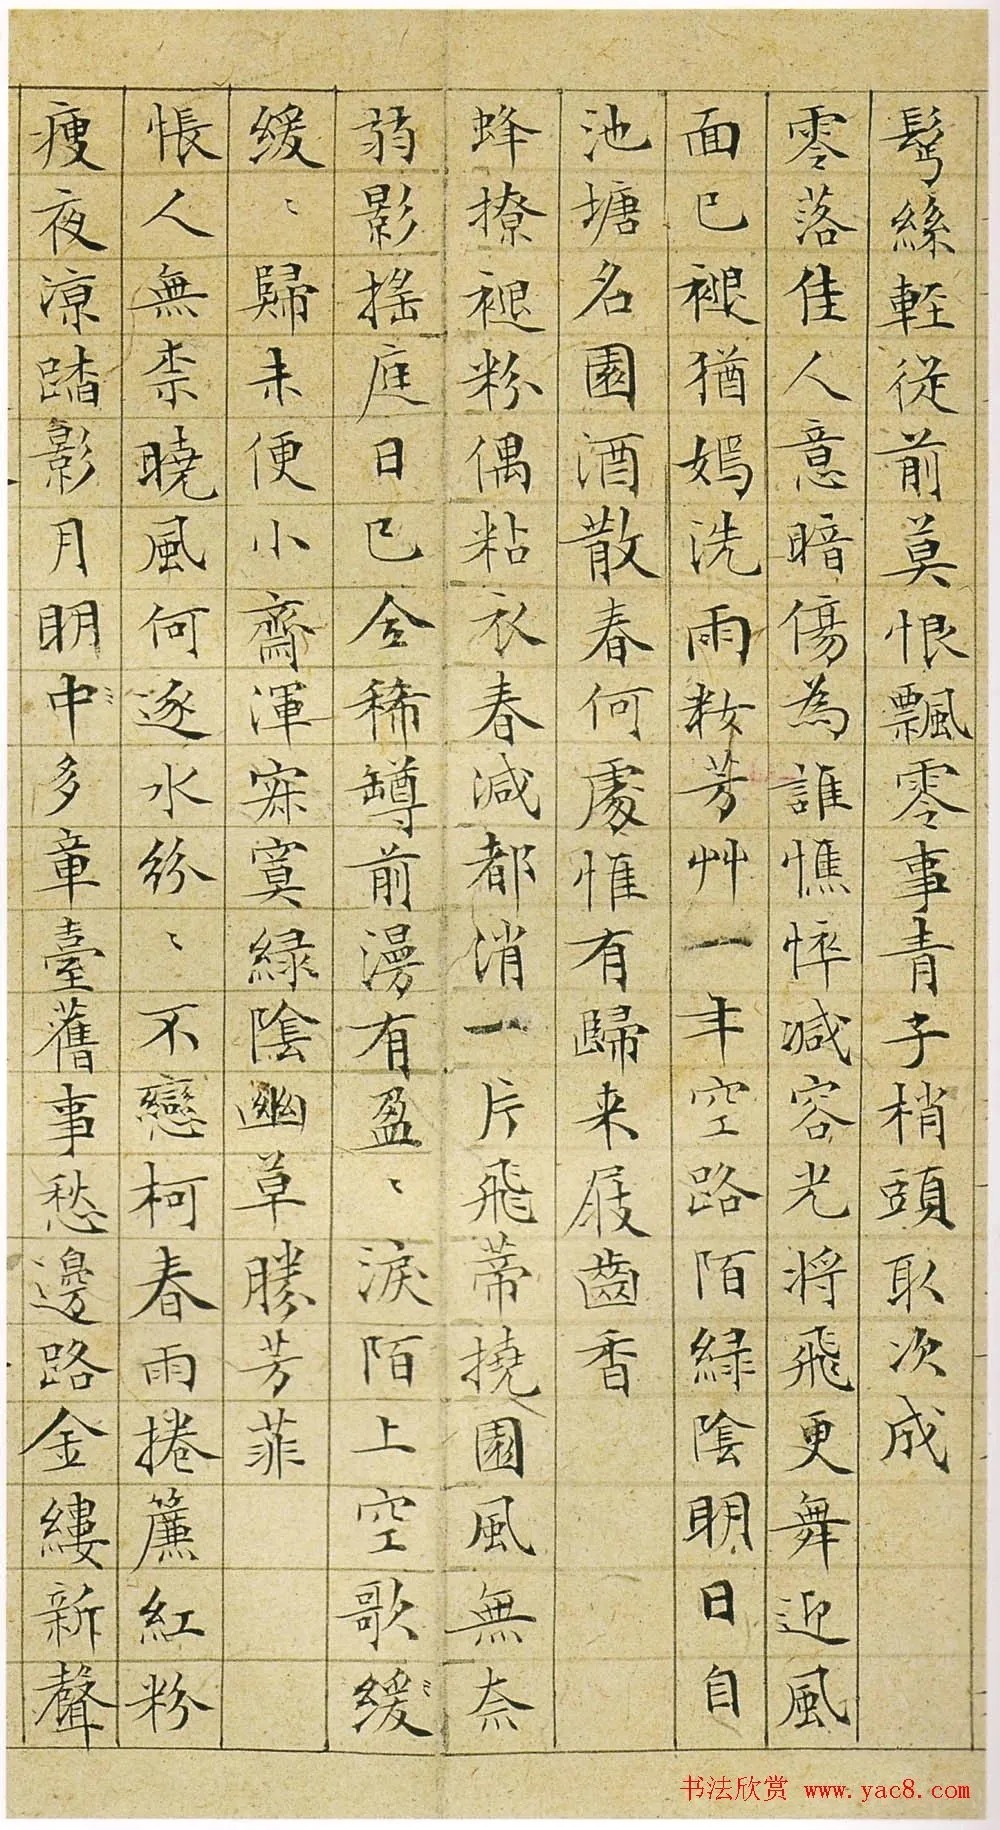 鬢絲輕從前莫恨飄零事青子梢頭取次成
零落佳人意暗傷為誰憔悴減容光將飛更舞迎風
面已褪猶嫣洗雨粧芳艸一年空路陌綠陰明日自
池塘名園酒散春何處惟有歸来屐齒香
蜂撩褪粉偶粘衣春減都消一片飛蒂撓園風無奈
弱影搖庭日已全稀罇前漫有盈〻淚陌上空歌緩
緩〻歸未便小齋渾寂寞綠陰幽草勝芳菲
悵人無柰曉風何逐水紛〻不戀柯春雨捲簾紅粉
瘦夜涼踏影月明中多章臺舊事愁邊路金縷新聲
书法欣赏 www.yac8.com